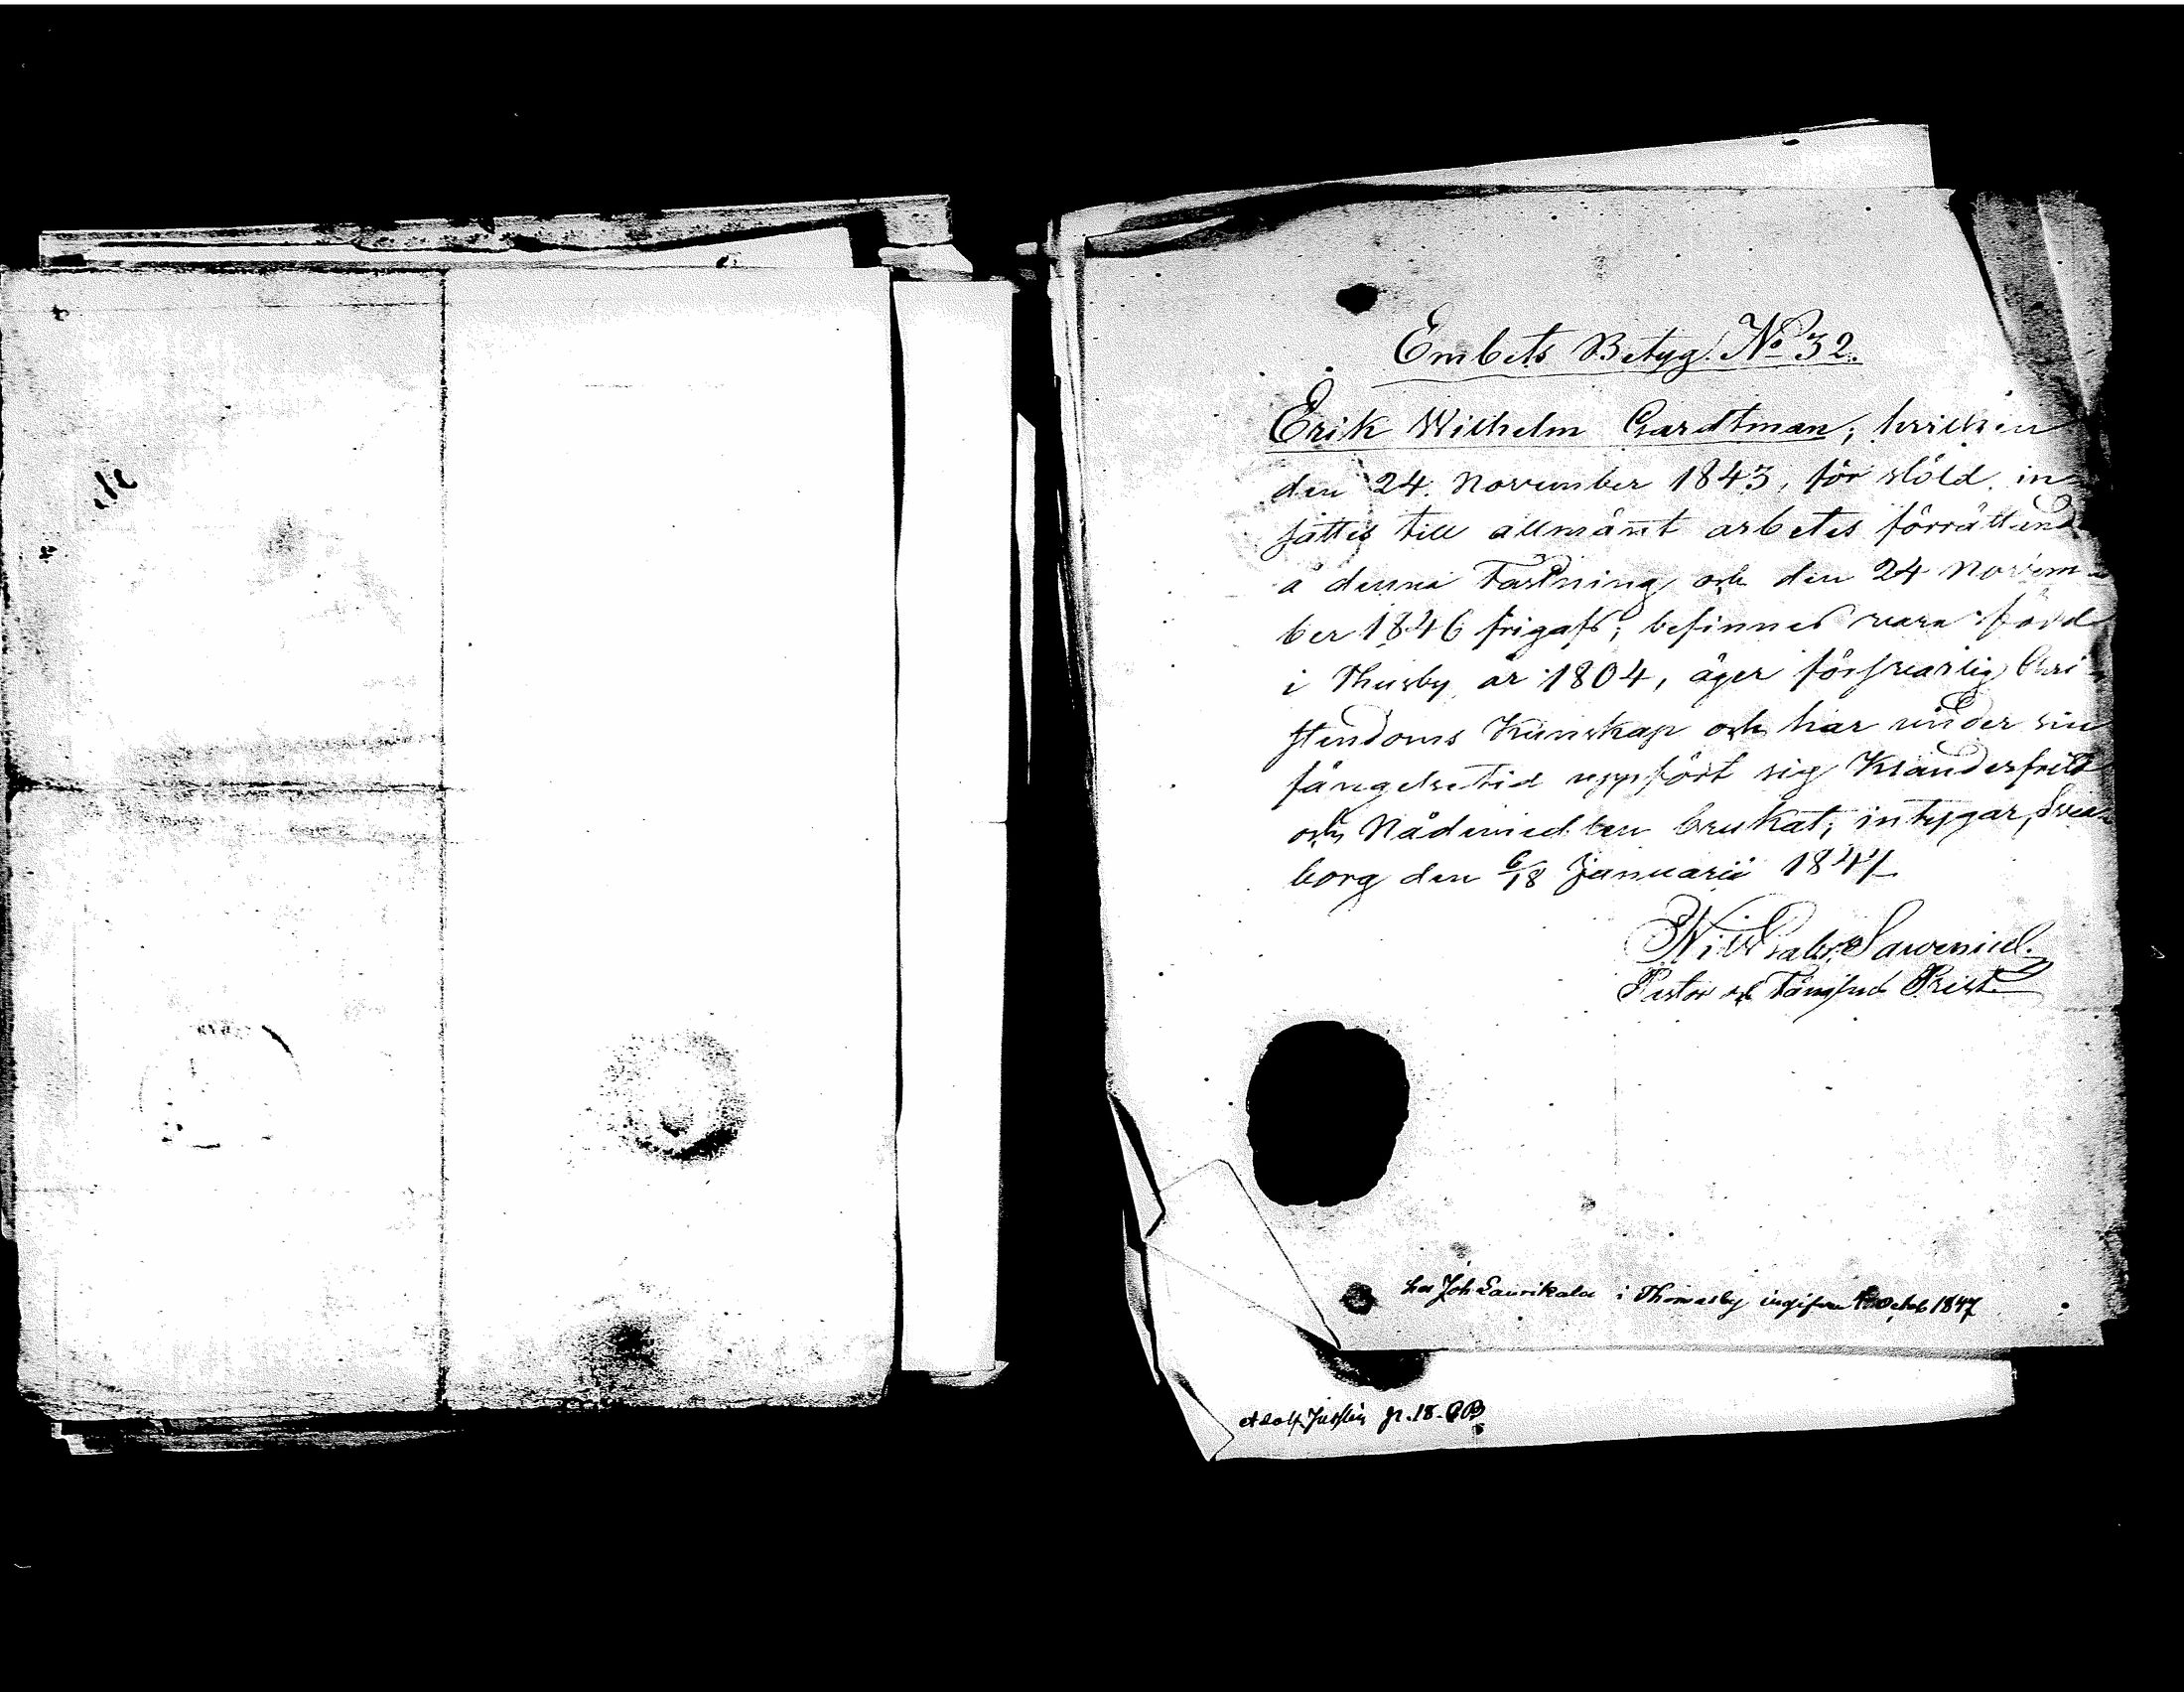 Embets Betyg No 32.
Erik Wilhelm Gardtman; hvilken
den 24. November 1843, för stöld, in
sattes till allmänt arbetes förrättand
å denna Fästning och den 24 Novem-
ber 1846 frigafs; befinnes vara född
i Thusby år 1804, äger försvarlig Chri-
stendoms Kunskap och har under sin
fängelsetid uppfört sig Klanderfritt
och Nådemedlen brukat; intygar, Svea
borg den 6/18 Januarii 1847
Pastor och Fängelse Prest
hos Joh Laurikala i Thomasby 1847
Adolf